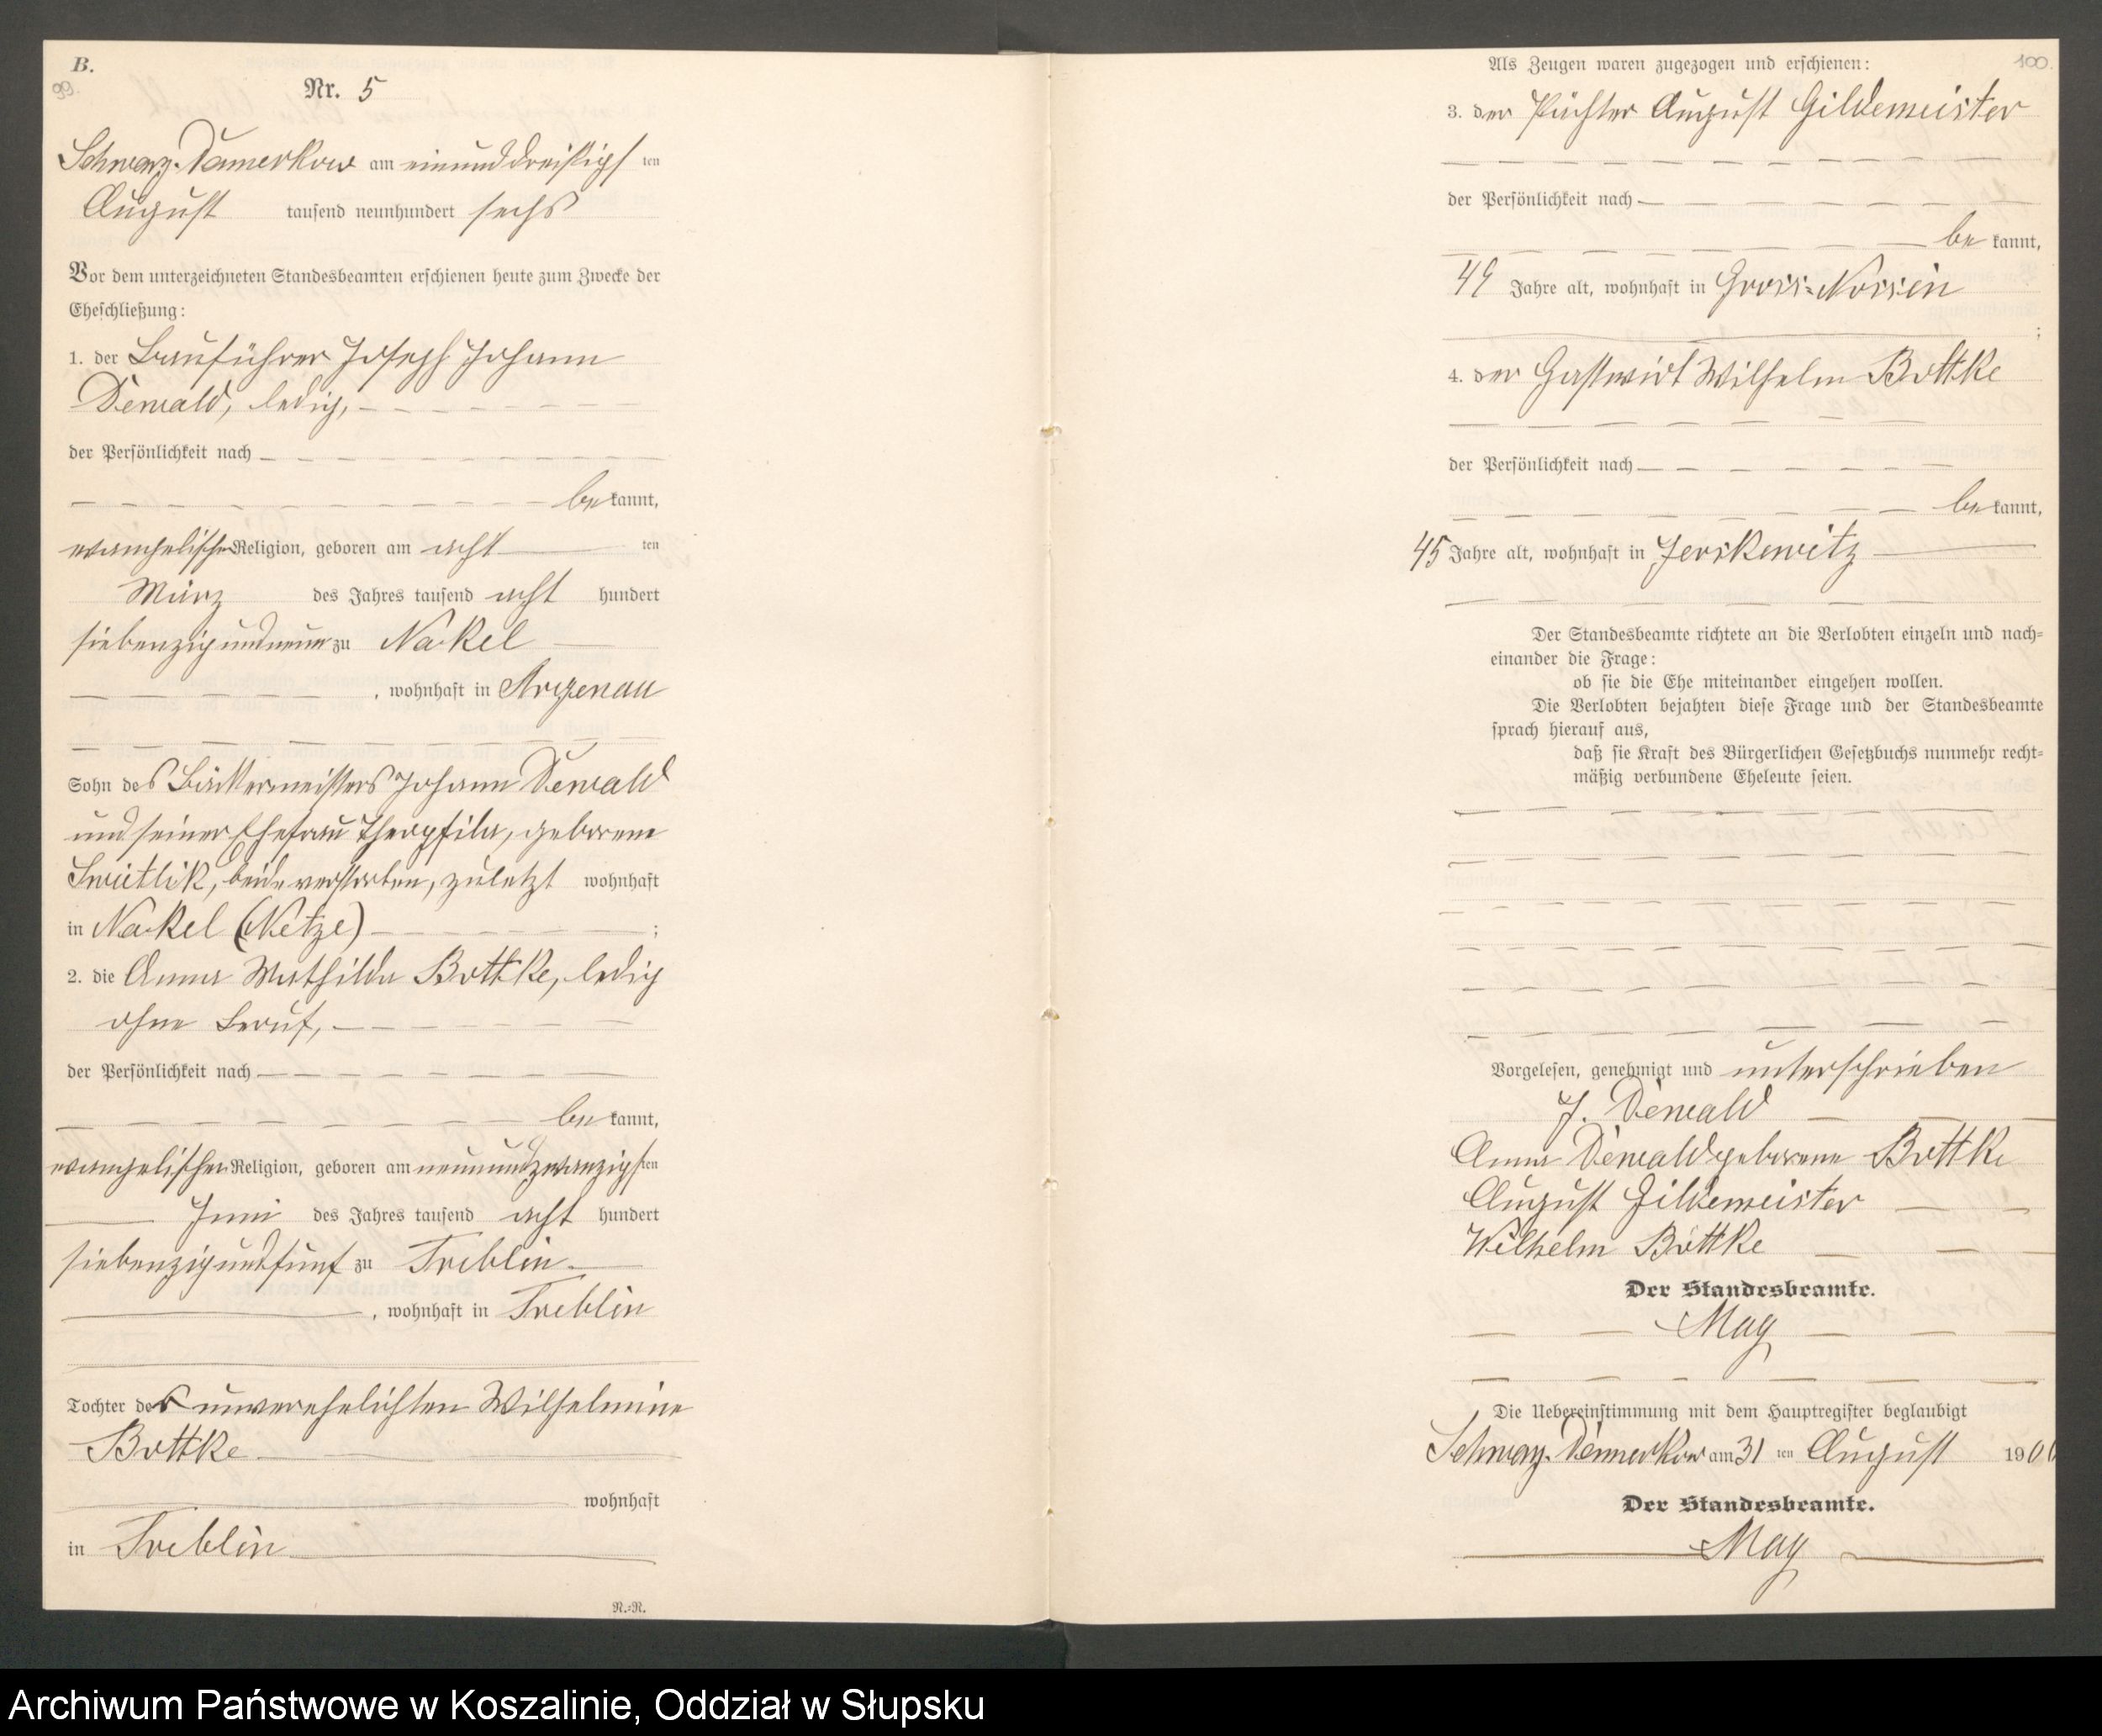 B.
99.
Nr. 5
Schwarz-Damerkow am einunddreißigsten
August tausend neunhundert sechs
Vor dem unterzeichneten Standesbeamten erschienen heute zum Zwecke der
Eheschließung:
1. der Bauführer Joseph Johann
Dewald, ledig,
der Persönlichkeit nach
be kannt,
evangelischer Religion, geboren am acht ten
März des Jahres tausend acht hundert
siebenzig und neun zu Nakel
, wohnhaft in Argenau
Sohn des Bäckermeisters Johann Dewald
und seiner Ehefrau Theophila, geborene
Swietlik, beide verstorben, zuletzt wohnhaft
in Nakel (Netze) ;
2. die Anna Mathilde Bottke, ledig
ohne Beruf,
der Persönlichkeit nach
be kannt,
evangelischer Religion, geboren am neunundzwanzigsten
Juni des Jahres tausend acht hundert
siebenzig und fünf zu Treblin
, wohnhaft in Treblin
Tochter der unverehelichten Wilhelmine
Bottke
wohnhaft
in Treblin
R.=R.
100.
Als Zeugen waren zugezogen und erschienen:
3. der Pächter August Gildemeister
der Persönlichkeit nach
be kannt,
49 Jahre alt, wohnhaft in Gross-Nossin
;
4. der Gastwirt Wilhelm Bottke
der Persönlichkeit nach
be kannt,
45 Jahre alt, wohnhaft in Jerskewitz
Der Standesbeamte richtete an die Verlobten einzeln und nach=
einander die Frage:
ob sie die Ehe miteinander eingehen wollen.
Die Verlobten bejahten diese Frage und der Standesbeamte
sprach hierauf aus,
daß sie Kraft des Bürgerlichen Gesetzbuchs nunmehr recht=
mäßig verbundene Eheleute seien.
Vorgelesen, genehmigt und unterschrieben
J. Dewald
Anna Dewald geborene Bottke
August Gildemeister
Wilhelm Bottke
Der Standesbeamte.
May
Die Uebereinstimmung mit dem Hauptregister beglaubigt
Schwarz-Damerkow am 31 ten August 1906
Der Standesbeamte.
May
Archiwum Państwowe w Koszalinie, Oddział w Słupsku